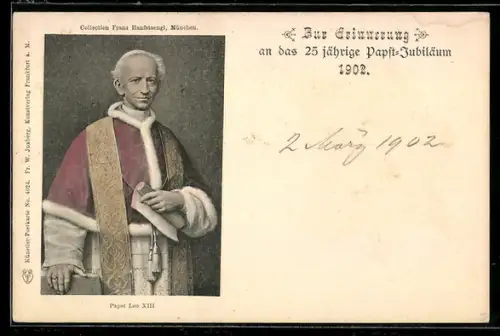 Collection Franz Hanfstaengl, München.
Zur Erinnerung
an das 25 jährige Papst-Jubiläum
1902.
2 März 1902
Künstler-Postkarte No. 4024. Fr. W. Kunstverlag Frankfurt a. M.
Papst Leo XIII